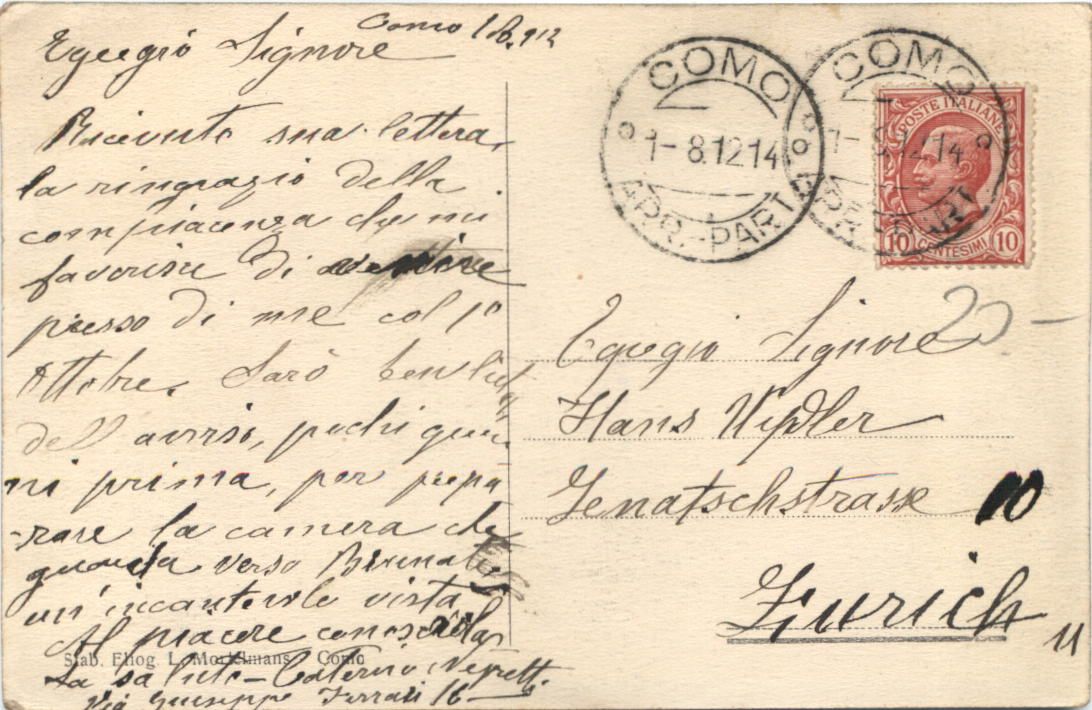 Como 1.8.912
Egregio Signore
Ricevuto sua lettera,
la ringrazio della
compiacenza che mi
favorisce di
presso di me col 1º
Ottobre. Sarò ben lieta
dell avviso, pochi gior
ni prima, per prepa
rare la camera che
guarda verso Brunate
un'incantevole vista
Al piacere conoscerla
La saluto - Caterina Negretti
Via Giuseppe Ferrari 16
Stab. Eliog L. Mockelmans Como
COMO
1-8.12 14
ARR.-PART.
COMO
1-8.12 14
ARR.-PART.
POSTE ITALIANE
10 CENTESIMI 10
20 -
Egregio Signore
Hans
Jenatschstrasse 10
Zurich
11